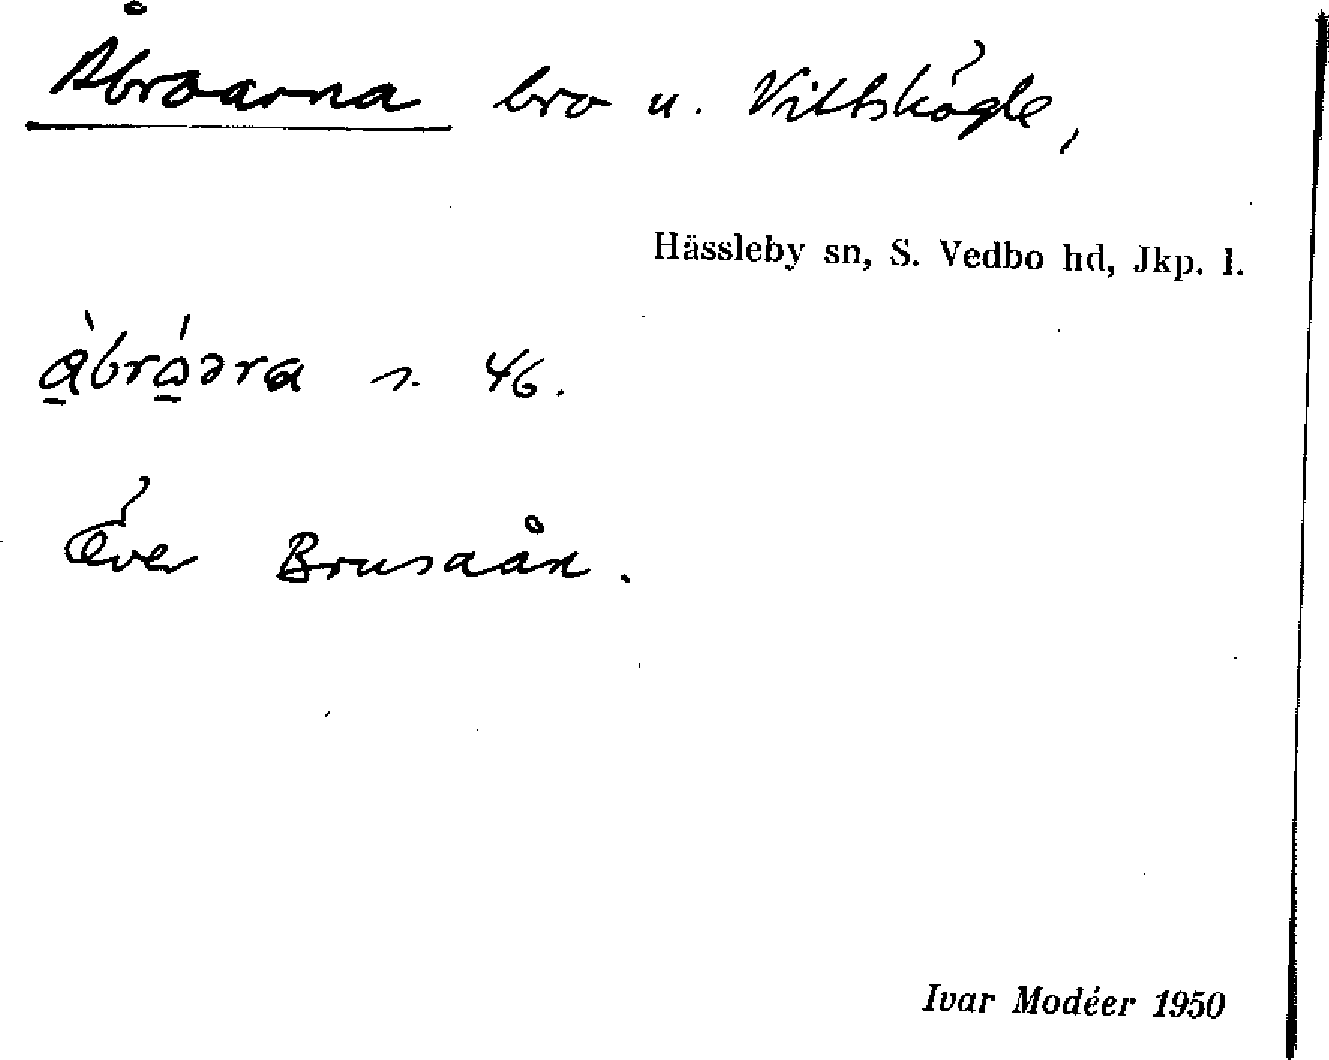 Åbroarna bro u. Viltskögle,
Hässleby sn, S. Vedbo hd, Jkp. l.
s. 46.
Över Brusaån.
Ivar Modéer 1950